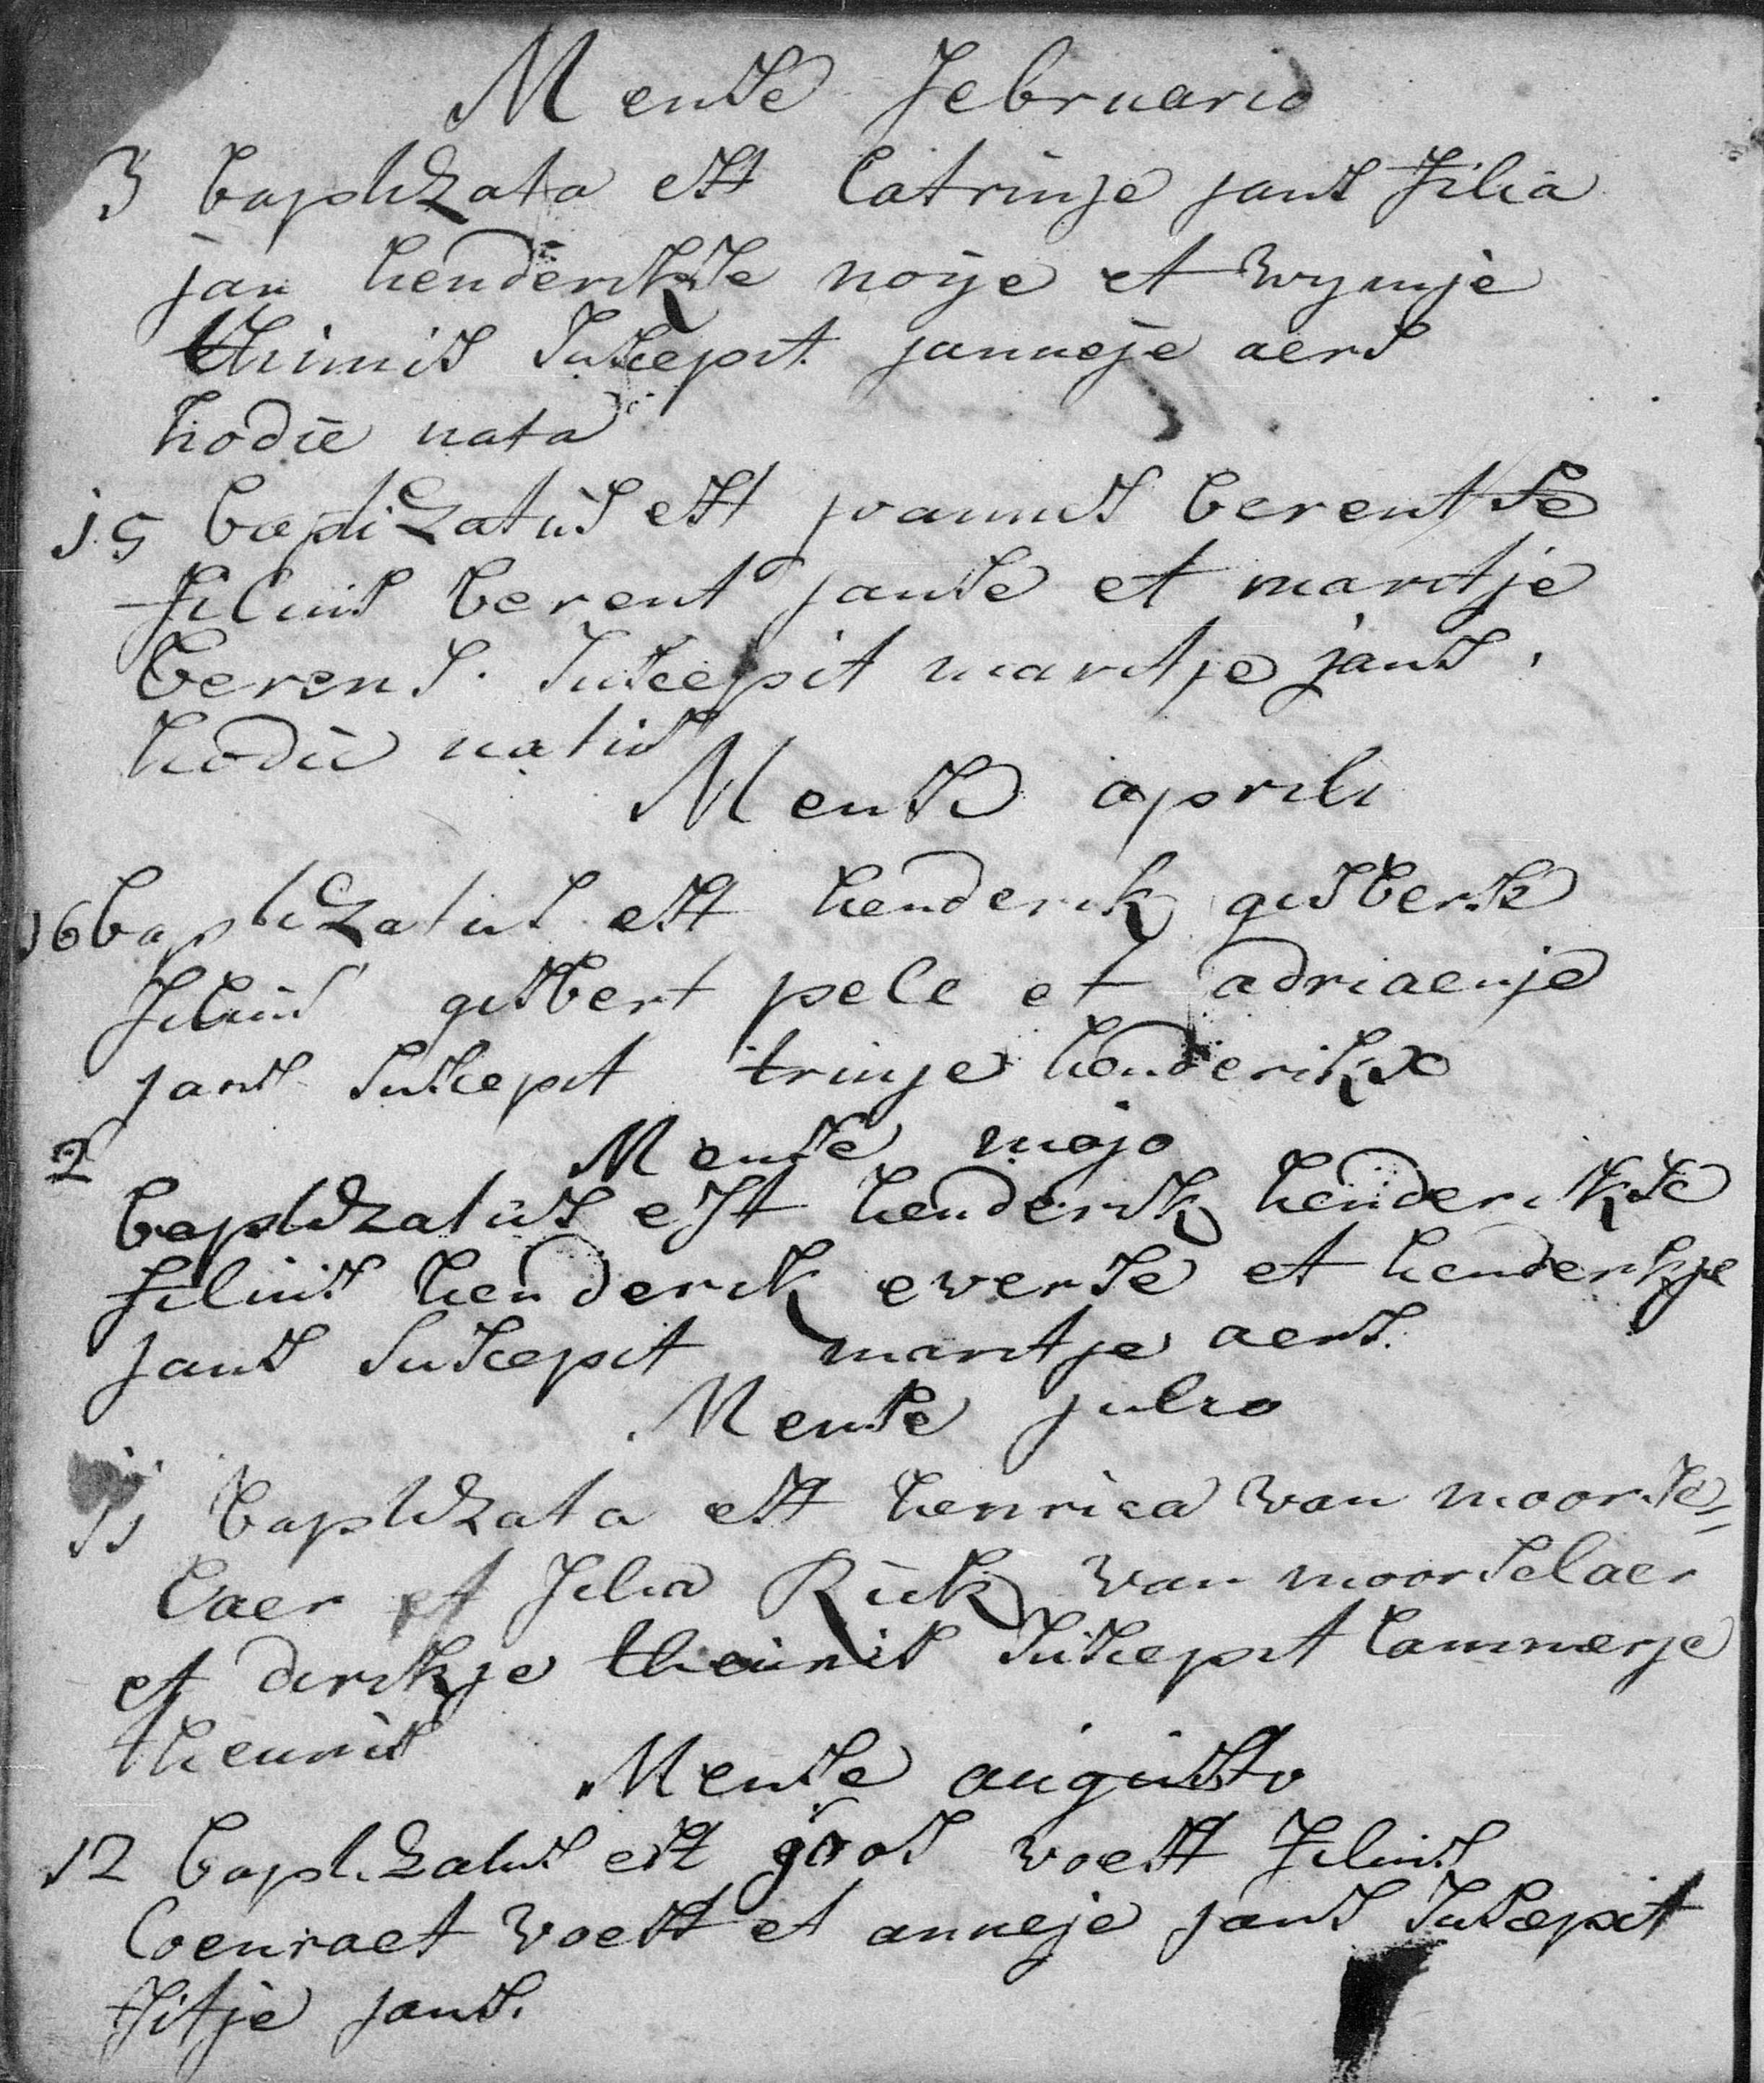 Mense Februario
3 baptizata est Catrinje jans filia
jan henderikse noije et wymje
thimis suscepit janneje aers
hodie nata
15 baptizatus est joannes berentse
filius berent janse et maritje
berens. suscepit maritje jans.
hodie natus
Mense aprili
16 baptizatus est henderik gisberse
filius gisbert pele et adriaenje
jans suscepit trinje henderikx
Mense majo
2 baptizatus est henderik henderikse
filius henderik everse et henderikje
jans suscepit maritje aers.
Mense julio
11 baptizata est henrica van moorse=
laer et filia Rick van moorselaer
et dirikje theunis suscepit lammerje
theunis
Mense augusto
12 baptizatus est voest filius
Coenraet voest et anneje jans suscepit
fitje jans.